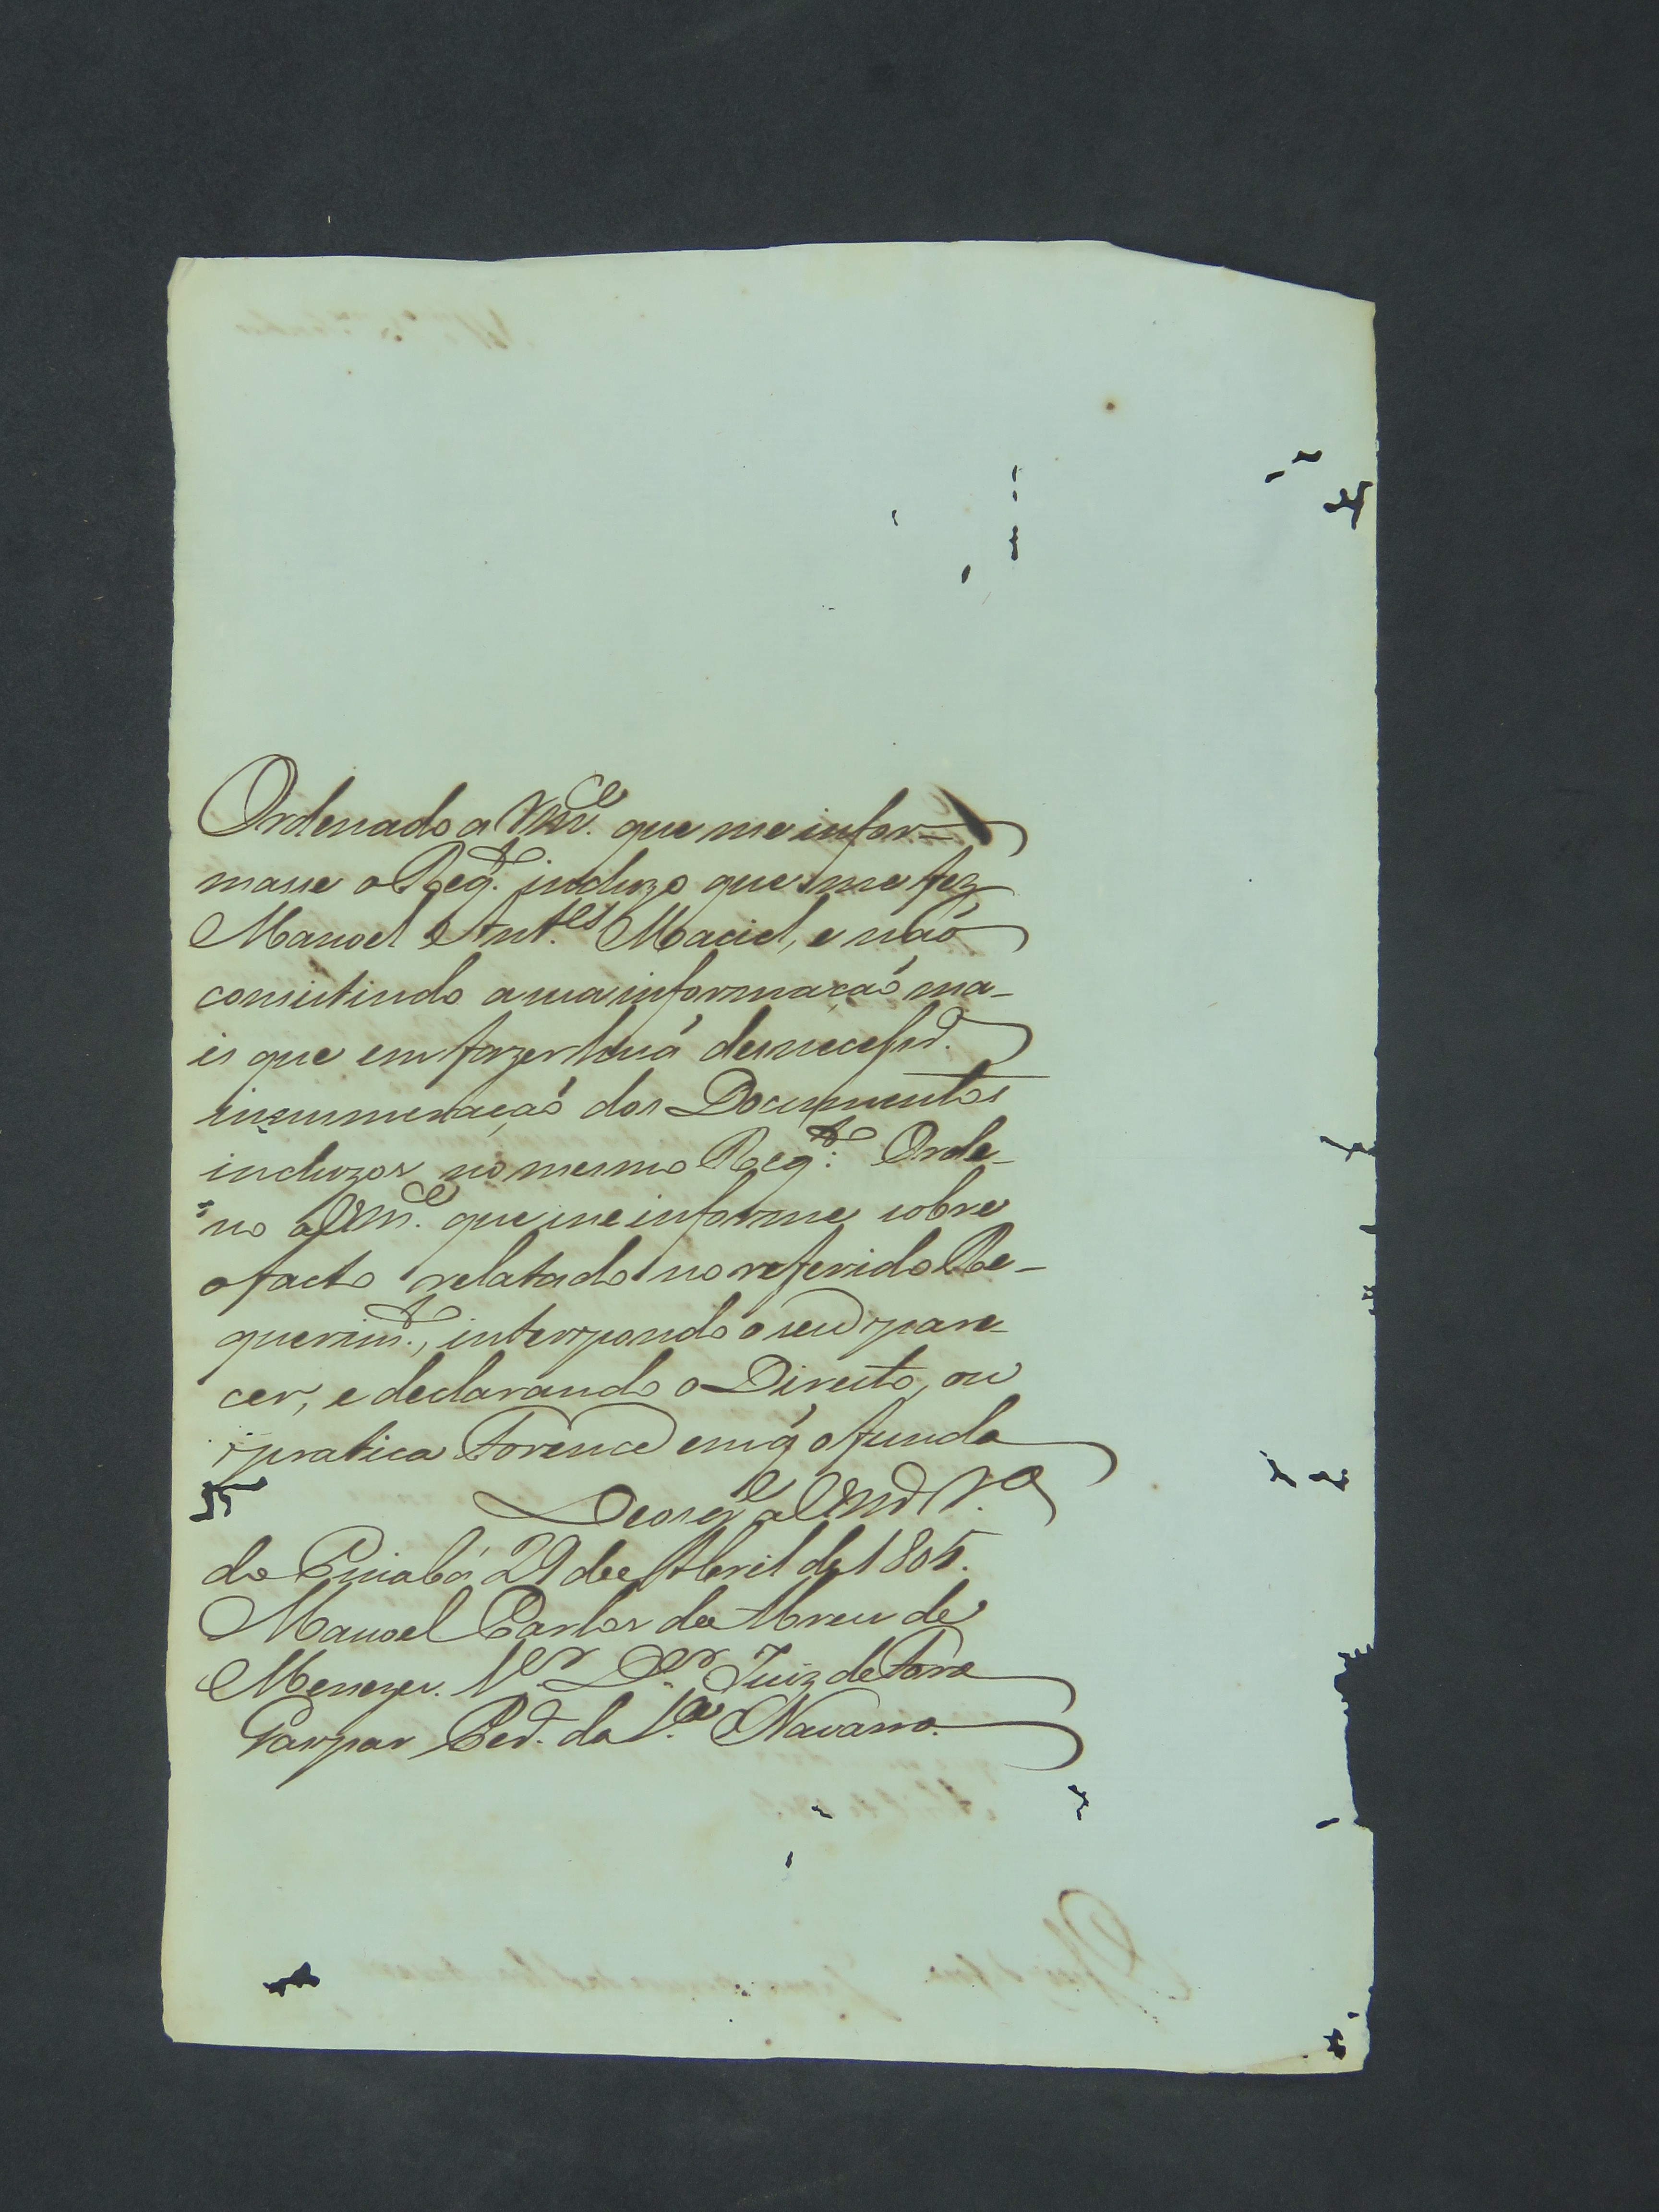 Ordenado a Vmce. que me infor-
masse o Reqto. incluzo que me fez
Manoel Antes. Maciel, e não
consistindo a sua informação ma-
is que em fazer huá desnecessra.
innumeração dos Documentos
incluzos no mesmo Reqto: Orde-
no a Vmce. que me informe sobre
o facto relatado no referido Re-
querimto., interpondo o seu pare-
cer, e declarando o Direito, ou
pratica Forence em q̃ o funda
Deos ge. a Vmce. Va.
do Cuiabá 29 de Abril de 1805.
Manoel Carlos de Abreu de
Menezes. Sr. Dr. Juiz de Fora
Gaspar Per. da Sa. Navarro.